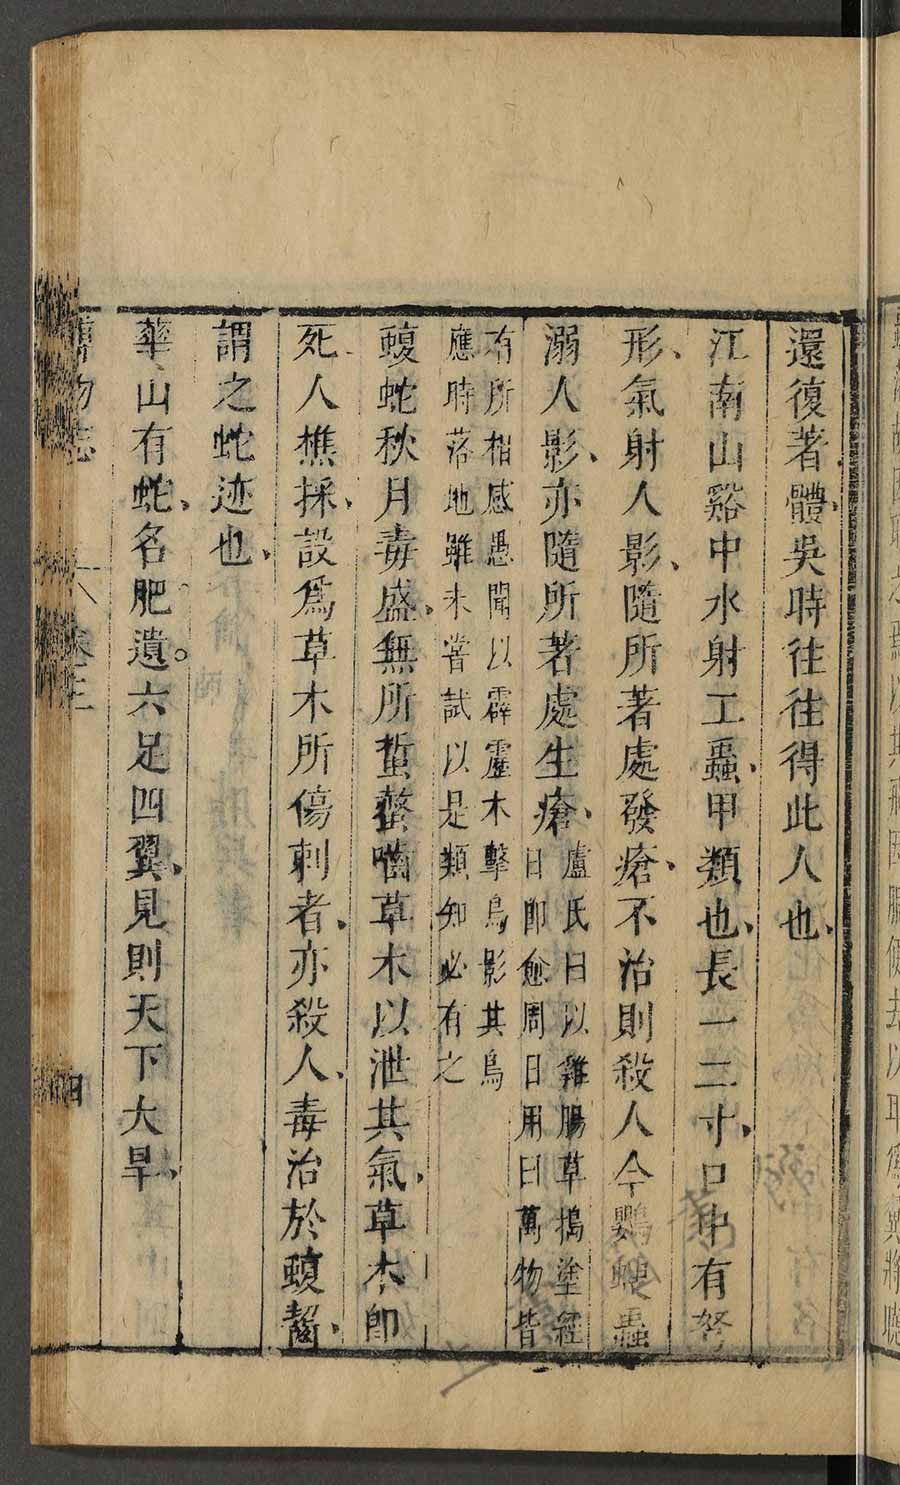 還復著體吳時往往得此人也
江南山谿中水射工蟲甲類也長一二寸口中有弩
形氣射人影隨所著處發瘡不治則殺人今鸚螋蟲
溺人影亦隨所著處生瘡盧氏曰以雞腸草搗塗經
日即愈周日用曰萬物皆
有所相感愚聞以霹靂木擊鳥影其鳥
應時落地雖未嘗試以是類知必有之
蝮蛇秋月毒盛無所蜇螫嚙草木以泄其氣草木即
死人樵採設為草木所傷刺者亦殺人毒治於蝮齧
謂之蛇迹也
華山有蛇名肥遺六足四翼見則天下大旱
物志
卷三
四